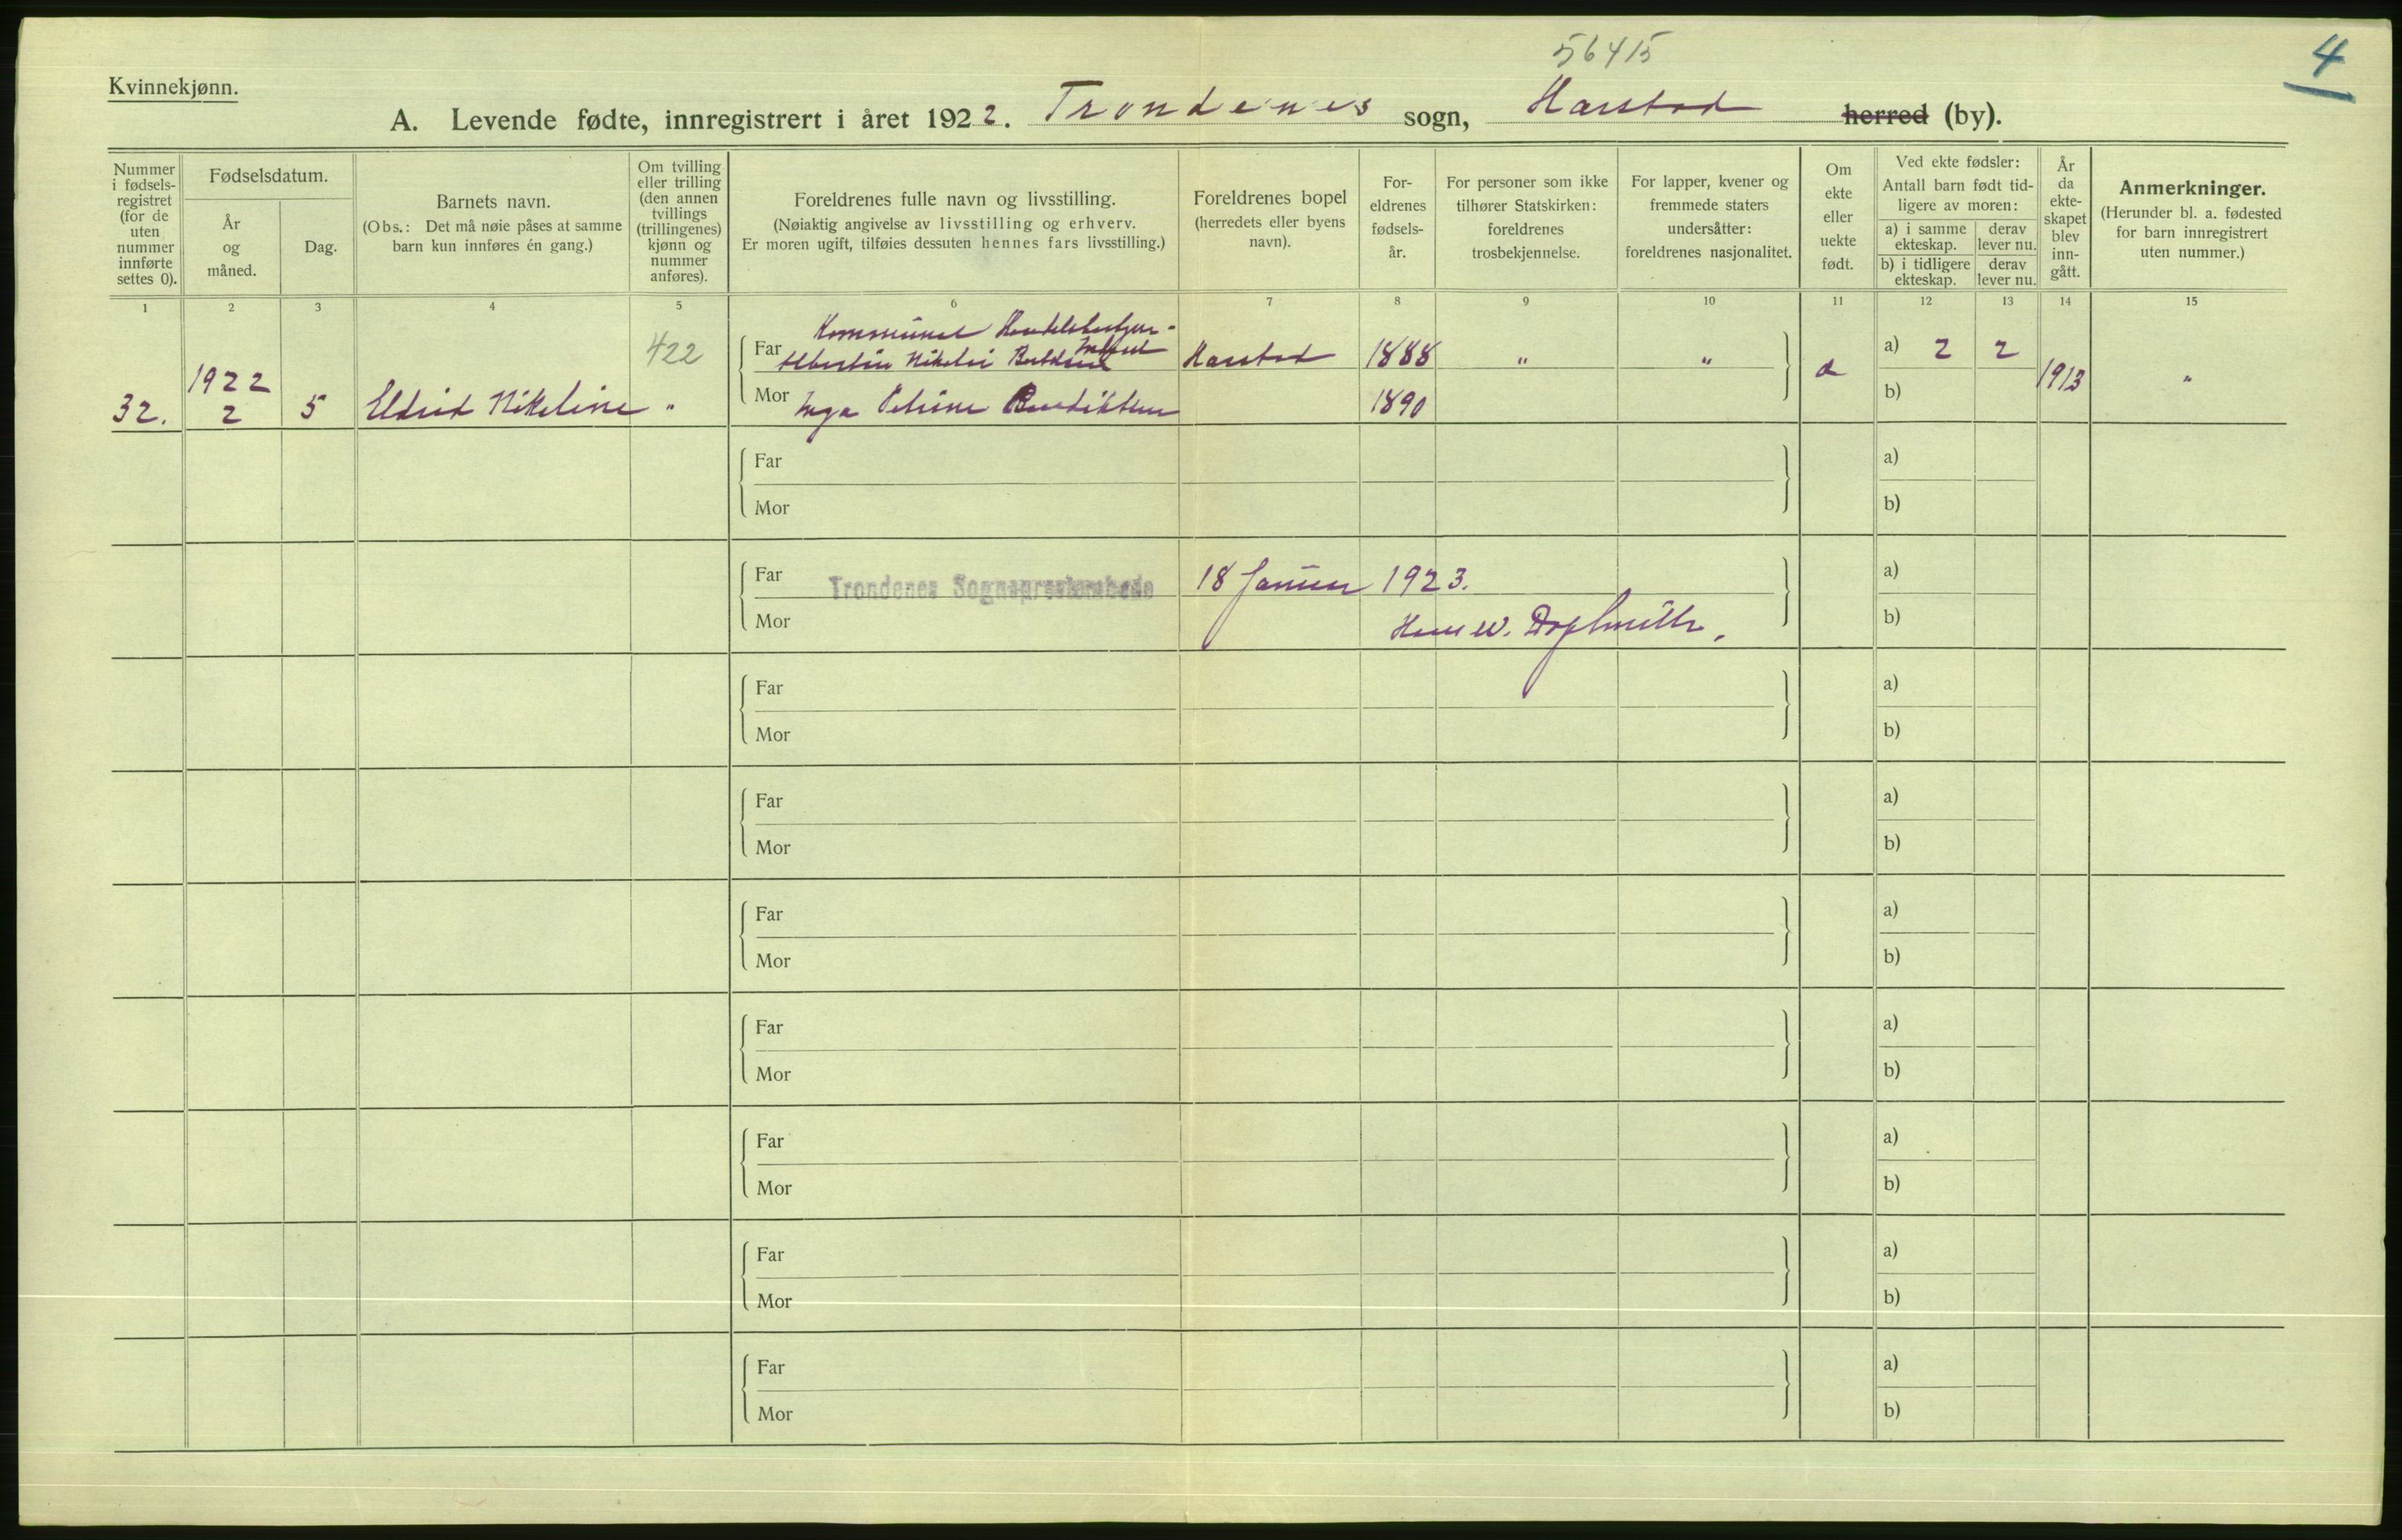 56415
4
Kvinnekjønn.
A. Levende fødte, innregistrert i året 1922. Trondenes sogn, Harstad herred (by).
Nummer i fødsels-registret (for de uten nummer innførte settes 0).
Fødselsdatum.
År og måned.
Dag.
Barnets navn.
(Obs.: Det må nøie påses at samme barn kun innføres én gang.)
Om tvilling eller trilling (den annen tvillings (trillingenes) kjønn og nummer anføres).
Foreldrenes fulle navn og livsstilling.
(Nøiaktig angivelse av livsstilling og erhverv.
Er moren ugift, tilføies dessuten hennes fars livsstilling.)
Foreldrenes bopel
(herredets eller byens navn).
For-eldrenes fødsels-år.
For personer som ikke tilhører Statskirken: foreldrenes trosbekjennelse.
For lapper, kvener og fremmede staters undersåtter: foreldrenes nasjonalitet.
Om ekte eller uekte født.
Ved ekte fødsler:
Antall barn født tid-ligere av moren:
a) i samme ekteskap.
derav lever nu.
b) i tidligere ekteskap.
derav lever nu.
År da ekte-skapet blev inn-gått.
Anmerkninger.
(Herunder bl. a. fødested for barn innregistrert uten nummer.)
1 2 3 4 5 6 7 8 9 10 11 12 13 14 15
32. 1922 2 5 Eldrid Nikeline " 422
Far Nikolai Harstad 1888 " " a) 2 2 1913 "
Mor Inga Petrine 1890 b)
Far a)
Mor b)
Far Trondenes Sogneprestembede 18 Januar 1923. a)
Mor Hans W. b)
Far a)
Mor b)
Far a)
Mor b)
Far a)
Mor b)
Far a)
Mor b)
Far a)
Mor b)
Far a)
Mor b)
Far a)
Mor b)